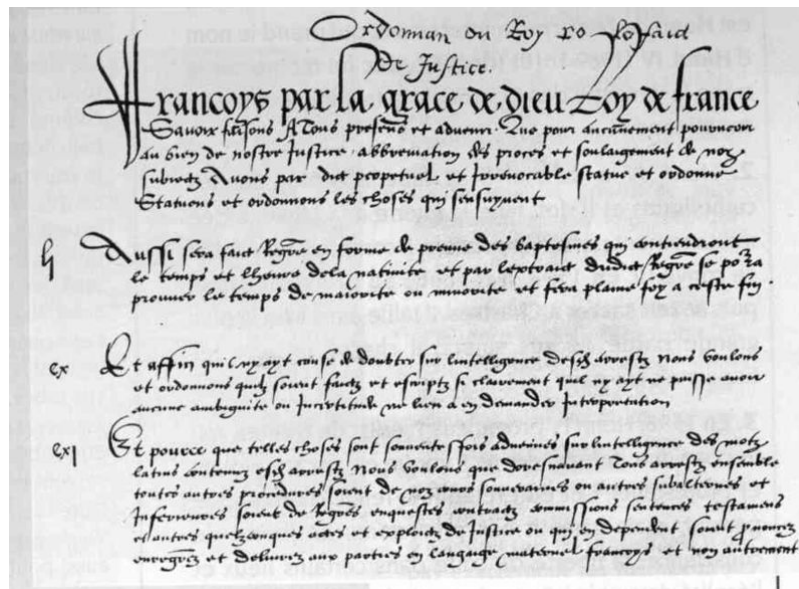 Ordonnan du Roy
De Justice.
Francoys par la grace de dieu Roy de france
Scavoir faisons A Tous presens et advenir Que pour aucunement pourveoir
au bien de nostre Justice abbreviation des proces et soulaigement de noz
subiectz Avons par edict perpetuel et Irrevocable statue et ordonne
Statuons et ordonnons les choses qui sensuyvent
lj Aussi sera faict Regre en forme de preuve des baptesmes qui contiendront
le temps et lheure dela nativite et par lextraict dudict Regre se pora
prouver le temps de maiorite ou minorite et fera plaine foy a ceste fin
cx Et affin quil ny ayt cause de doubter sur lintelligence desdz arrestz Nous voulons
et ordonnons quilz soient faictz et escriptz si clerement quil ny ayt ne puisse avoir
aucune ambiguite ou Incertitude ne lieu a en demander Interpretation
cxj Et pource que telles choses sont souventessfois advenues sur lintelligence des motz
latins contenuz esdz arrestz Nous voulons que doresnavant Tous arrestz ensemble
toutes autres procedures soient de Cors souveraines ou autres subalternes et
Inferieures soient de Regres enquestes contractz commissions sentences testamens
et autres quelzconques actes et exploictz de Justice ou qui en dependent soient
et delivrez aux parties en langage maternel francoys et non autrement